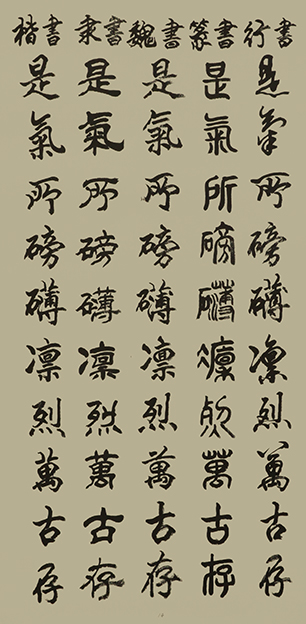 楷書 隶書 魏書 篆書 行書
是氣所磅礴凛烈萬古存
是氣所磅礴凛烈萬古存
是氣所磅礴凛烈萬古存
是氣所磅礴凛烈萬古存
是氣所磅礴凛烈萬古存